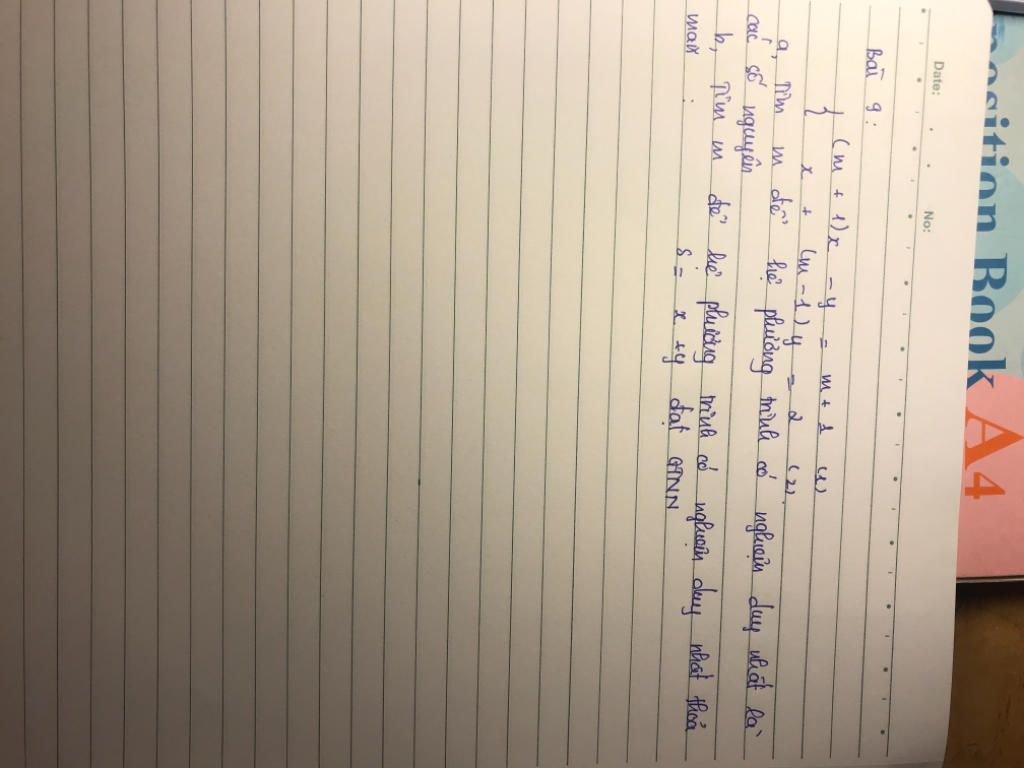 position Book
A4
Date:
No:
Bài 9:
{ (m + 1)x - y = m + 1 (1)
x + (m - 1) y = 2 (2)
a, Tìm m để hệ phương trình có nghiệm duy nhất là
các số nguyên
b, Tìm m để hệ phương trình có nghiệm duy nhất thoả
mãn : S = x + y đạt GTNN